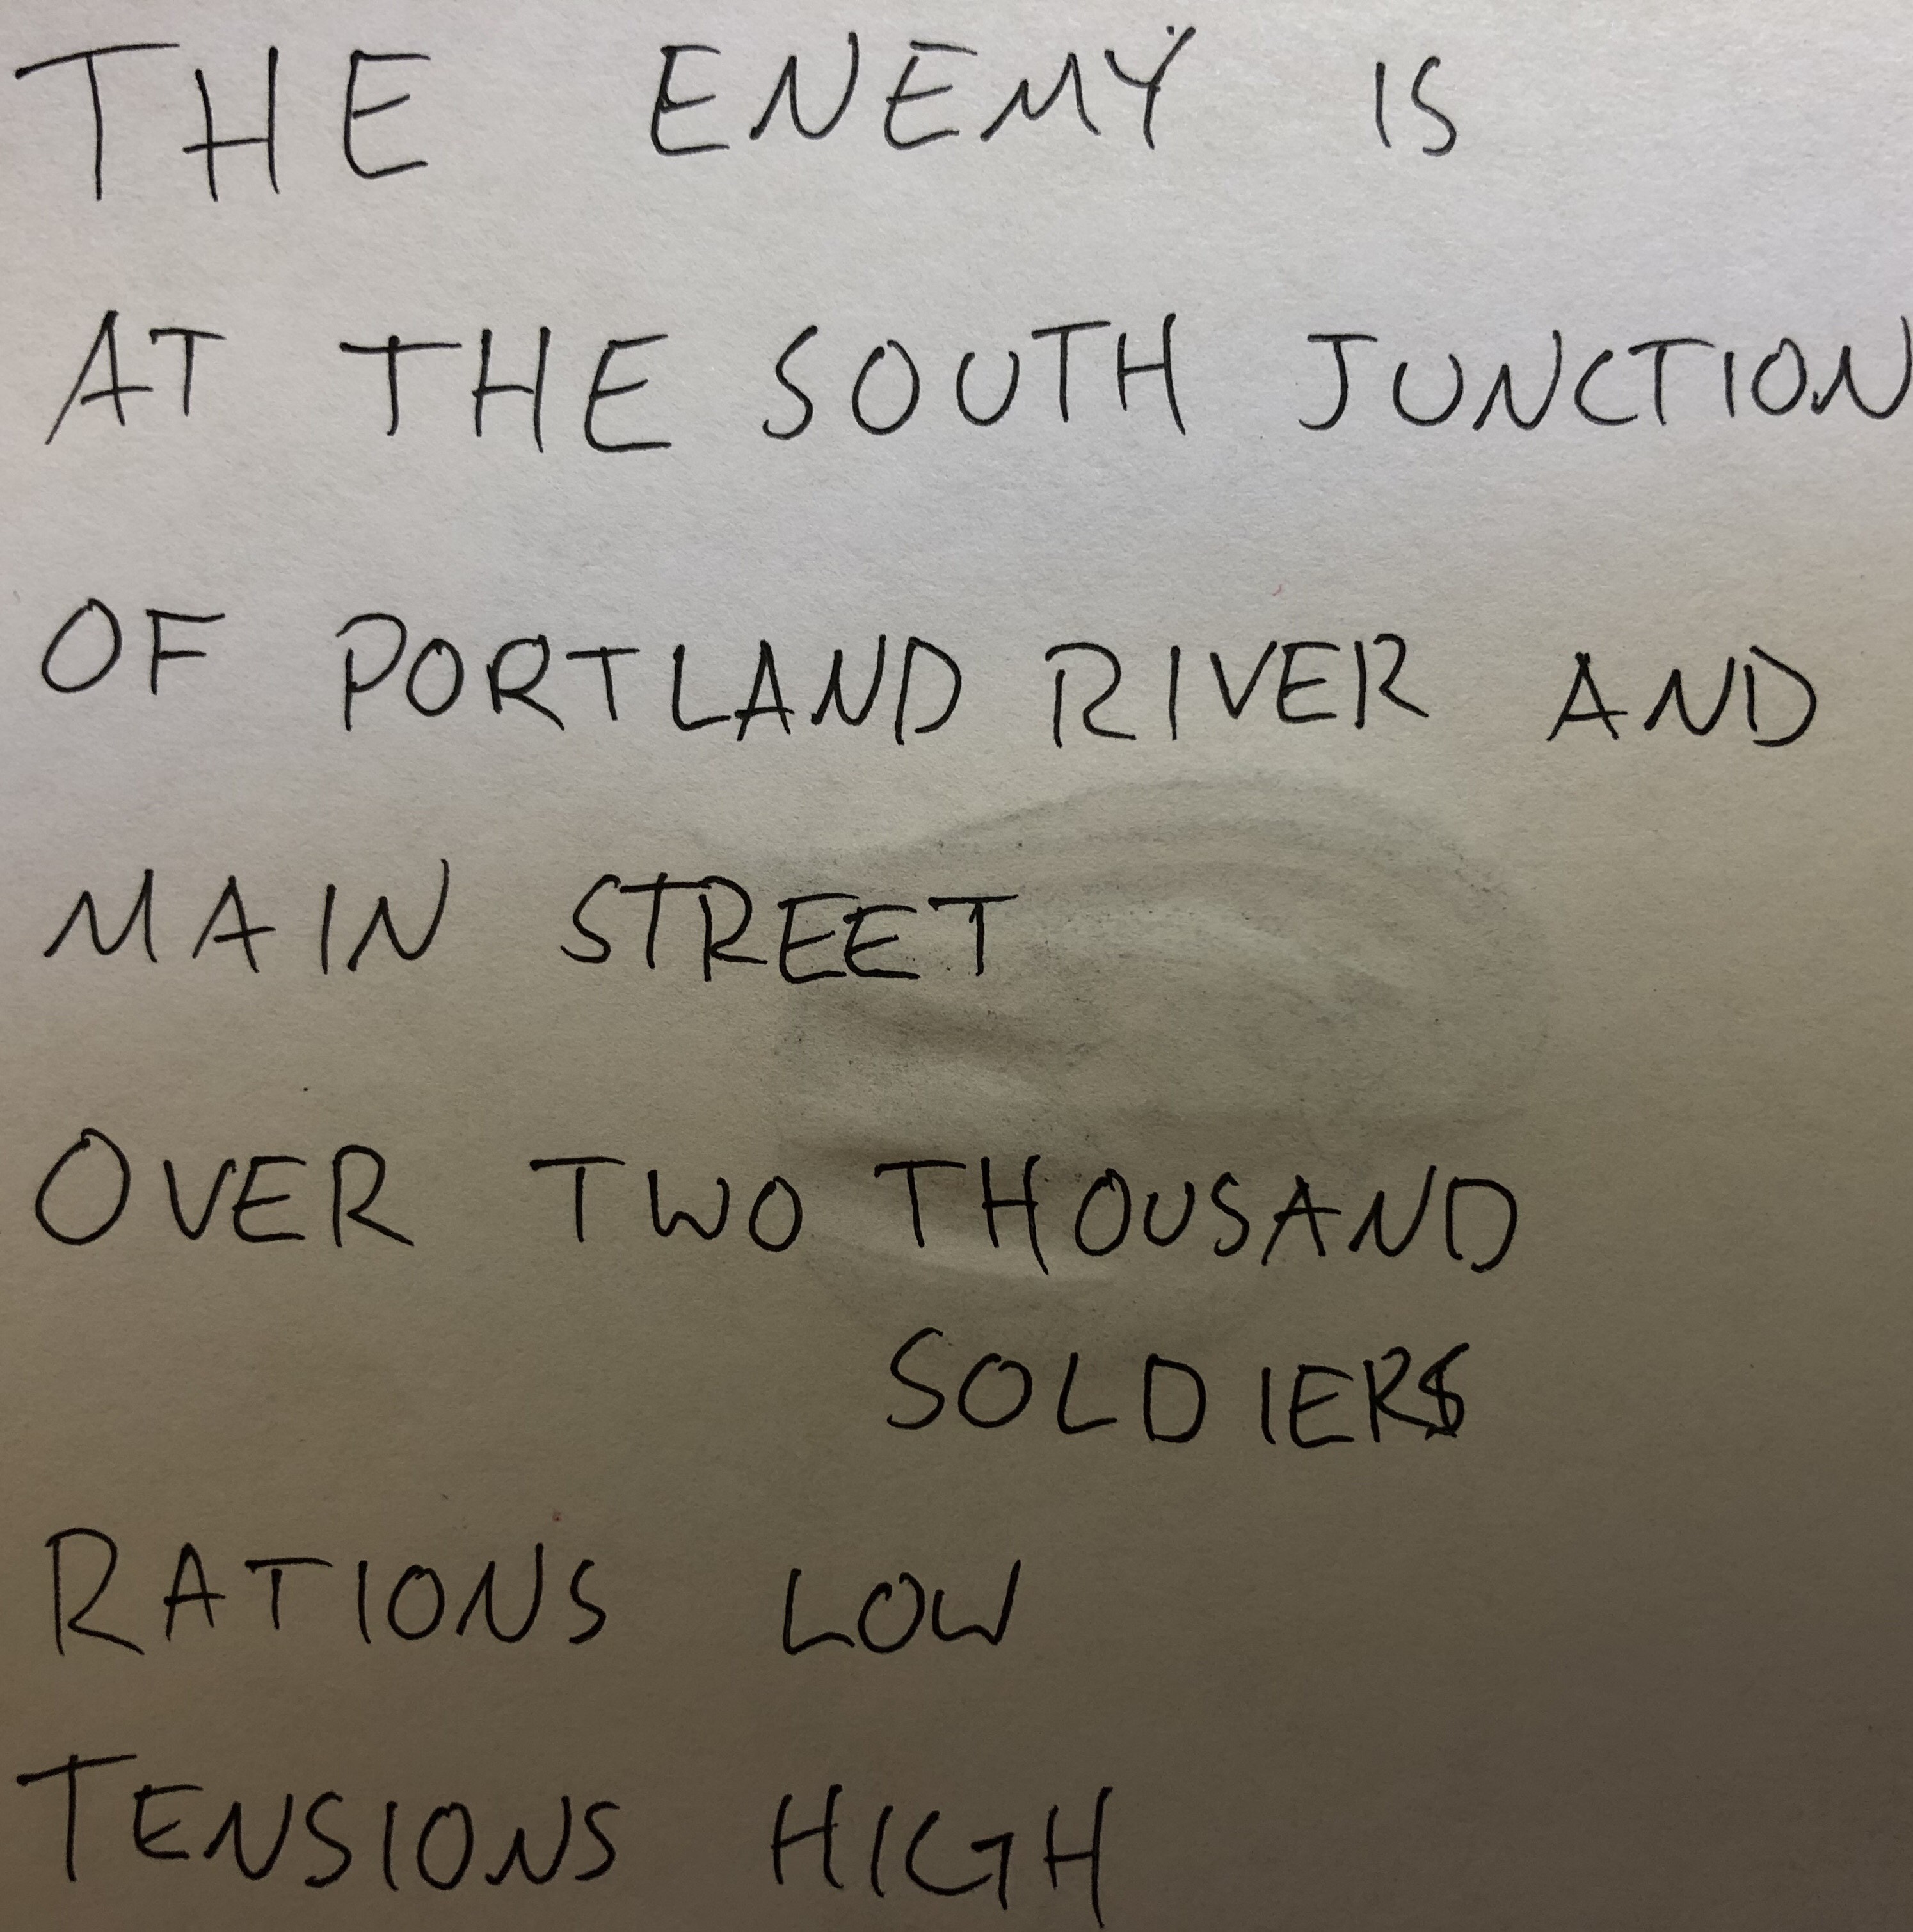 THE ENEMY IS
AT THE SOUTH JUNCTION
OF PORTLAND RIVER AND
MAIN STREET
OVER TWO THOUSAND
SOLDIERS
RATIONS LOW
TENSIONS HIGH